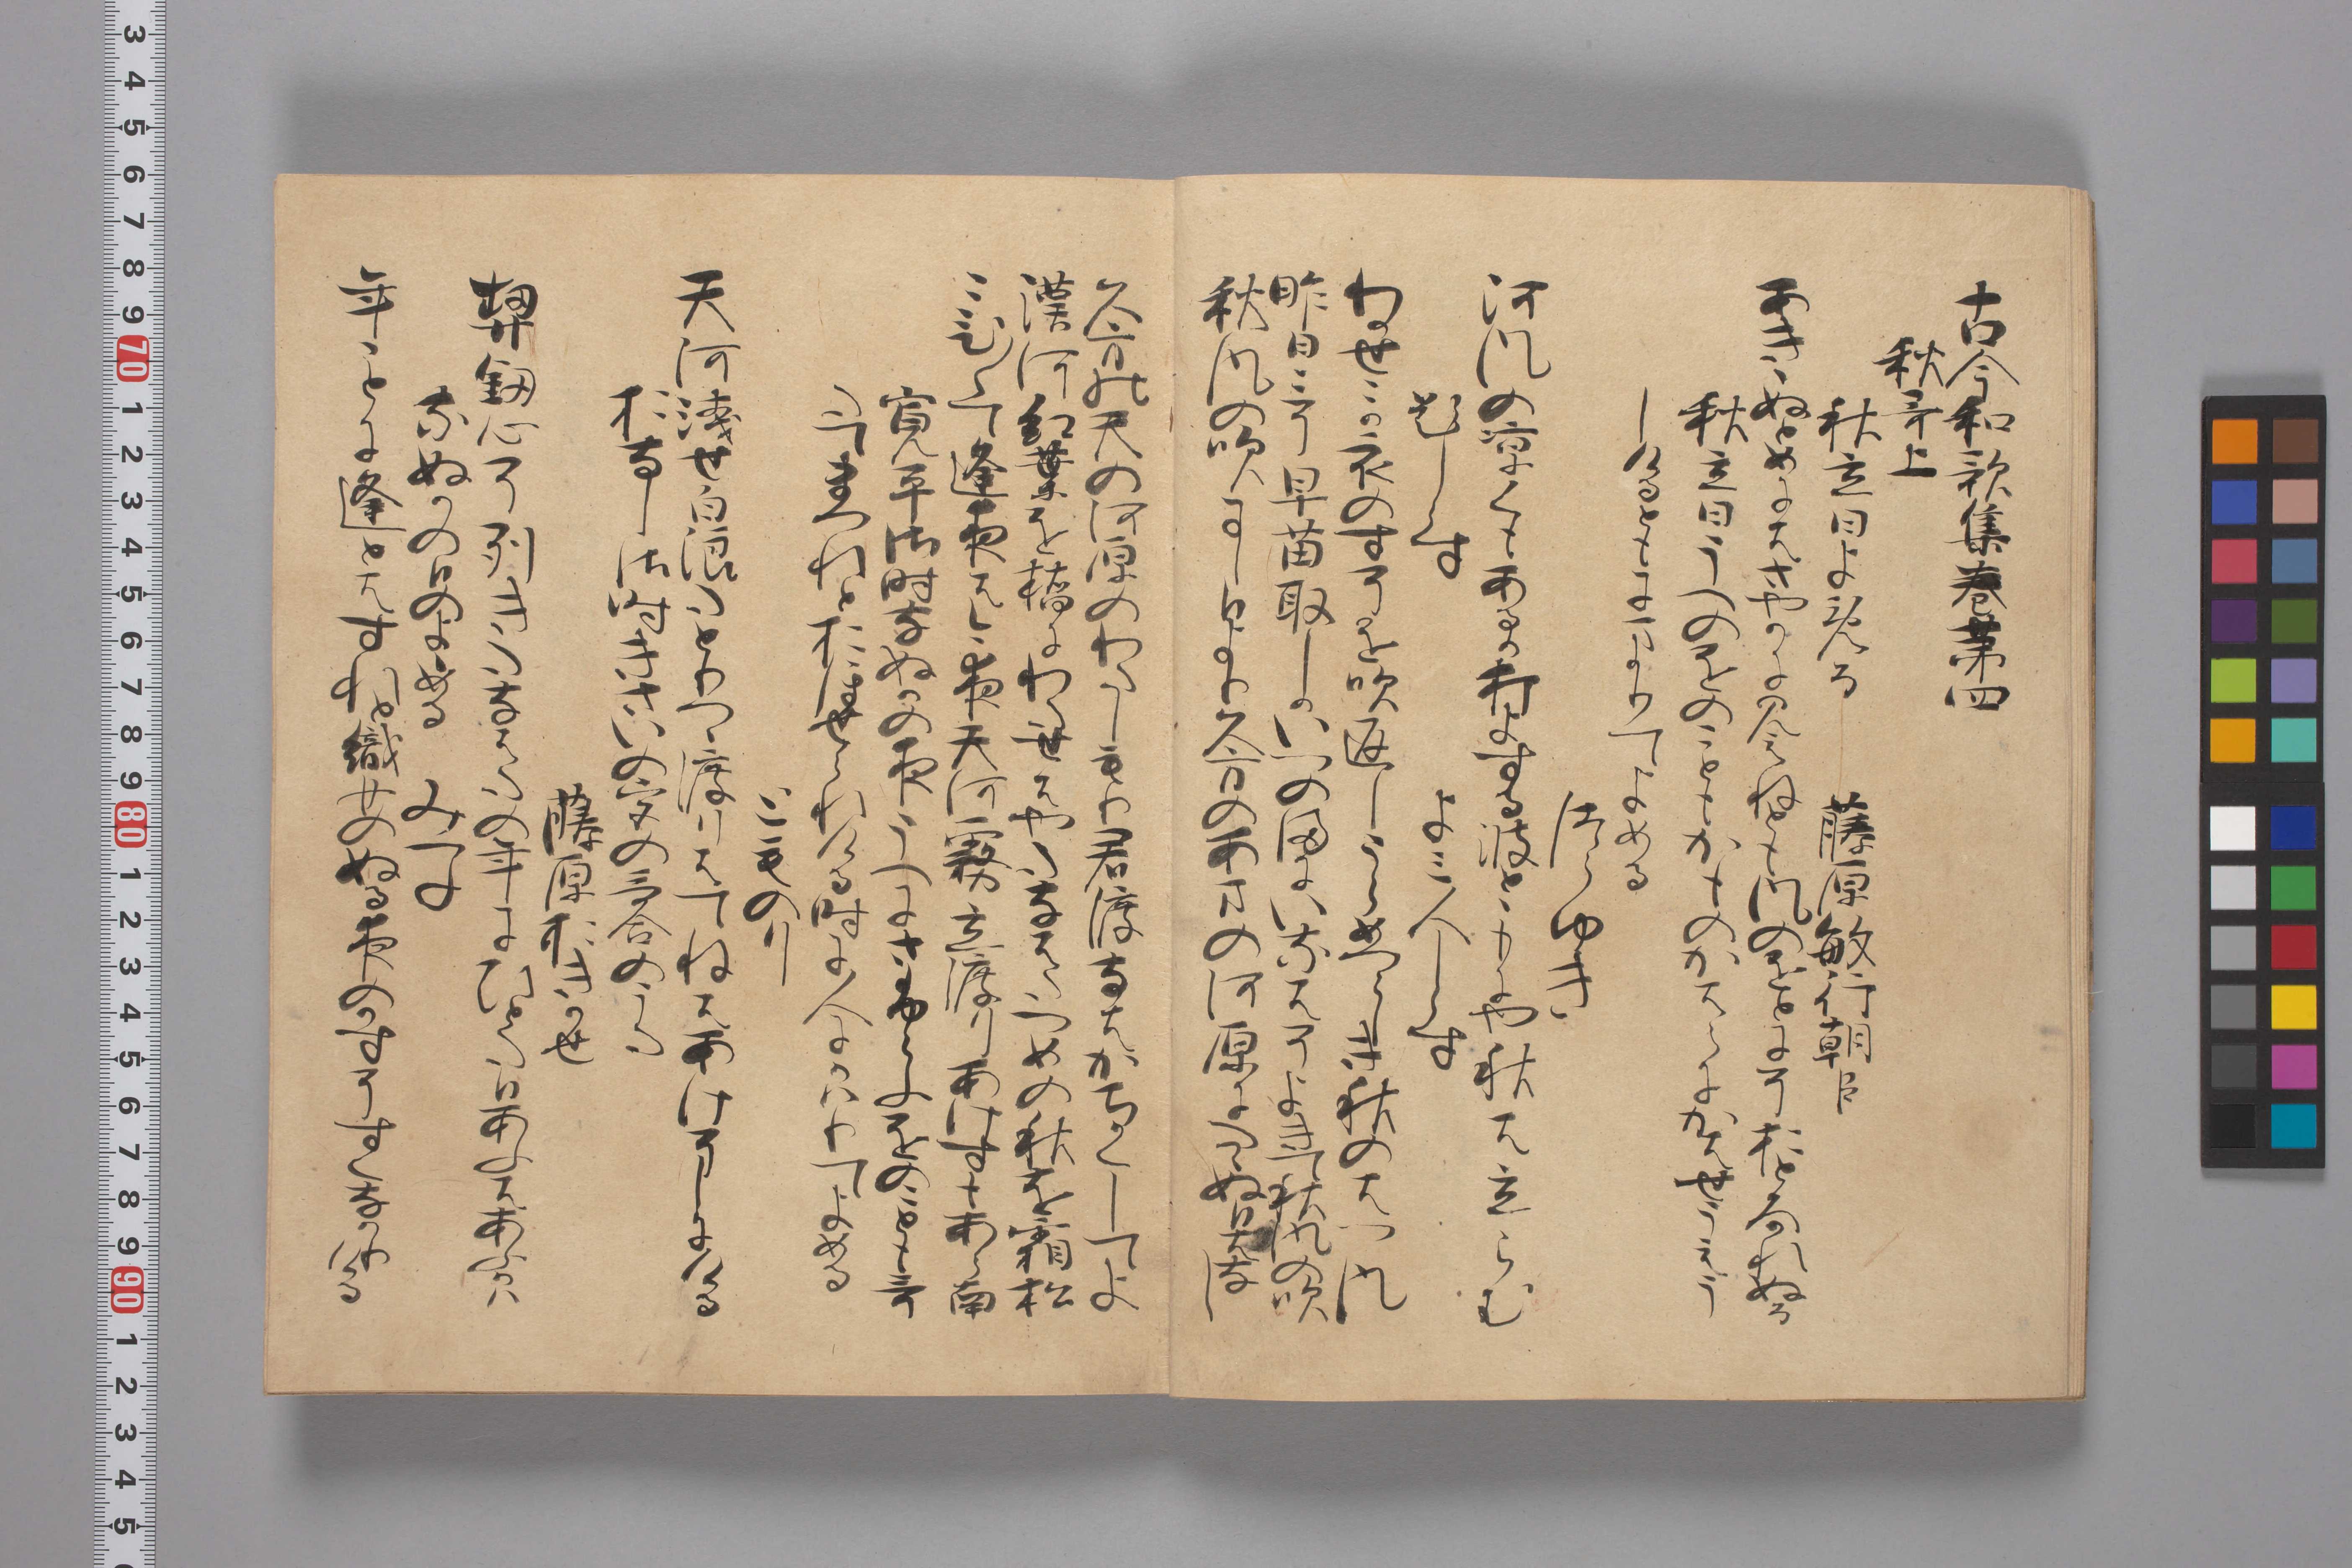 古今和歌集巻第四
秋哥上
秋立日よめる
藤原敏行朝臣
あききぬとめにはさやかに見えねとも風のをとにそおとろかれぬる
秋立日うへのをのこともかものかはらにかはせうえう
しけるともにまかりてよめる
つらゆき
河風の涼しくもあるか打よする浪とともにや秋は立らむ
題しらす
よみ人しらす
わかせこか衣のすそを吹返しうらめつらしき秋のはつ風
昨日こそ早苗取しかいつの間にいなはそよきて秋風の吹
秋風の吹にし日より久方のあまの河原にたゝぬ日はなし
久方の天の河原のわたしもり君渡なはかちかくしてよ
漢河紅葉を橋にわたせはやたなはたつめの秋をしも松
こひ〳〵て逢夜はこよひ天河霧立渡りあけすもあら南
寛平御時なぬかの夜うへにさふらふをのことも哥
たてまつれとおほせられける時に人にかはりてよめる
とものり
天河浅せ白浪たとりつゝ渡りはてねはあけそしにける
おなし御時きさいの宮の哥合のうた
藤原おきかせ
契劔心そつらきたなはたの年にひとたひあふはあふかは
なぬかの日の夜よめる
みつね
年ことに逢とはすれと織女のぬる夜のかすそすくなかりける